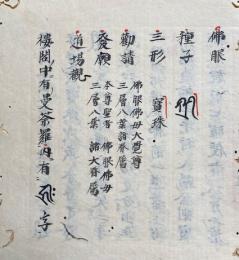 佛眼
種子
三形 寶珠
勸請 佛眼佛母大覺尊
三層八葉諸眷属
發願 本尊聖者 佛眼佛母
三層八葉 諸大眷属
道場觀
樓閣中有曼荼羅内有 字